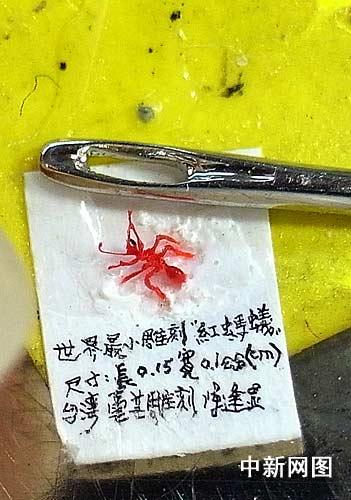 世界最小雕刻"紅螞蟻"
尺寸:長0.15寬0.1公分(cm)
台灣毫芒雕刻 陳逢显
中新网图